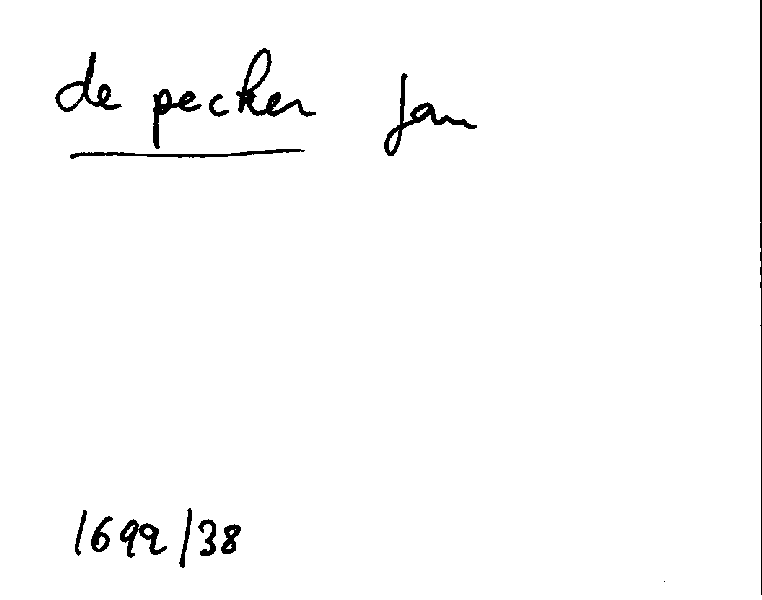 de pecker Jan
1699/38